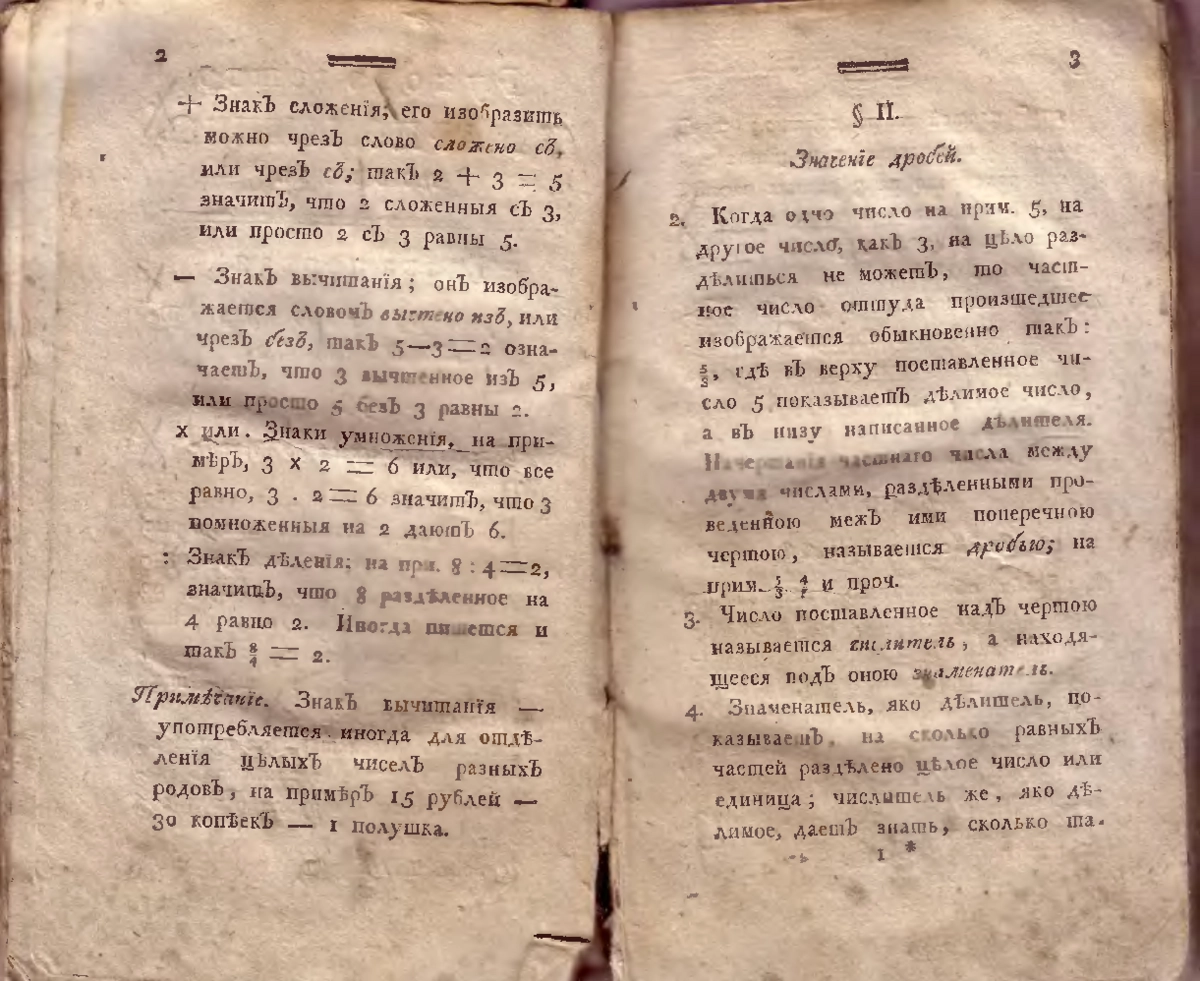 2
+ Знакъ сложенія; его изобразить
можно чрезъ слово сложено съ,
или чрезъ съ; такъ 2 + 3 = 5
значитъ, что 2 сложенныя съ 3,
или просто 2 съ 3 равны 5.
— Знакъ вычитанія; онъ изобра-
жается словомъ вычтено изъ, или
чрезъ безъ, такъ 5—3=2 озна-
чаетъ, что 3 вычтенное изъ 5,
или просто 5 безъ 3 равны 2.
х или . Знаки умноженія, на при-
мѣръ, 3 х 2 = 6 или, что все
равно, 3 . 2 = 6 значитъ, что 3
помноженныя на 2 даютъ 6.
: Знакъ дѣленія; на пр. 8 : 4=2,
значитъ, что 8 раздѣленное на
4 равно 2. Иногда пишется и
такъ 8/4 = 2.
Примѣчаніе. Знакъ вычитанія —
употребляется иногда для отдѣ-
ленія цѣлыхъ чиселъ разныхъ
родовъ, на примѣръ 15 рублей —
30 копѣекъ — 1 полушка.
3
§ II.
Значеніе дробей.
2. Когда одно число на прим. 5, на
другое число, какъ 3, на цѣло раз-
дѣлиться не можетъ, то част-
ное число оттуда произшедшее
изображается обыкновенно такъ:
5/3, гдѣ въ верху поставленное чи-
сло 5 показываетъ дѣлимое число,
а въ низу написанное дѣлителя.
Начертанія частнаго числа между
двумя числами, раздѣленными про-
веденною межъ ими поперечною
чертою, называется дробью; на
прим. 5/3, 4/7 и проч.
3. Число поставленное надъ чертою
называется числитель, а находя-
щееся подъ оною знаменатель.
4. Знаменатель, яко дѣлитель, по-
казываетъ, на сколько равныхъ
частей раздѣлено цѣлое число или
единица; числитель же, яко дѣ-
лимое, даетъ знать, сколько та-
1 *